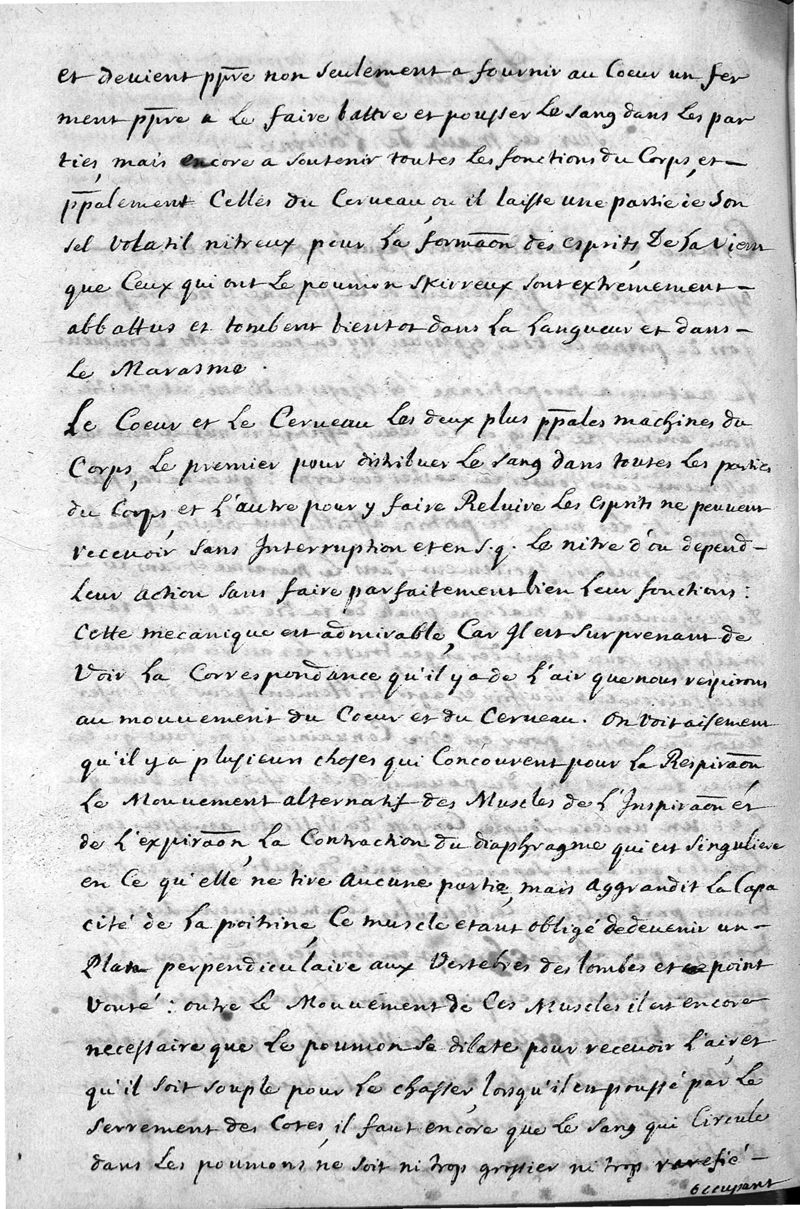 et devient pp̄re non seulement a fournir au Coeur un fer
ment pp̄re a le faire battre et pousser le sang dans les par
ties, mais encore a soutenir toutes les fonctions du Corps, et —
pp̄alement Celles du Cerveau, ou il laisse une partie de son
sel volatil nitreux pour la formaōn des esprits, De la vient
que Ceux qui ont le poumon skirreux sont extremement —
abbattus et tombent bientot dans la langueur et dans —
le Marasme.
Le Coeur et le Cerveau les deux plus pp̄ales machines du
Corps, le premier pour distribuer le sang dans toutes les parties
du Corps, et l'autre pour y faire Reluire les esprits ne peuvent
recevoir sans Interruption et en s.q. le nitre d'ou depend —
leur action sans faire parfaitement bien leur fonctions :
Cette mecanique est admirable, Car Il est surprenant de
Voir la Correspondance qu'il y a de l'air que nous respirons
au mouvement du Coeur et du Cerveau. On voit aisement
qu'il y a plusieurs choses qui Concourent pour la Respiraōn
Le Mouvement alternatif des Muscles de l'Inspiraōn et
de l'expiraōn, la Contraction du diaphragme qui est singuliere
en Ce qu'elle ne tire aucune partie, mais aggrandit la Capa
cité de la poitrine, Ce muscle etant obligé de devenir un —
Plan perpendiculaire aux Vertebres des lombes et point
Vouté : outre le Mouvement de Ces Muscles il est encore
necessaire que le poumon se dilate pour recevoir l'air, et
qu'il soit souple pour le chasser, lorsqu'il est poussé par le
serrement des Cotes, il faut encore que le sang qui Circule
dans les poumons, ne soit ni trop grossier ni trop rarefié —
occupant